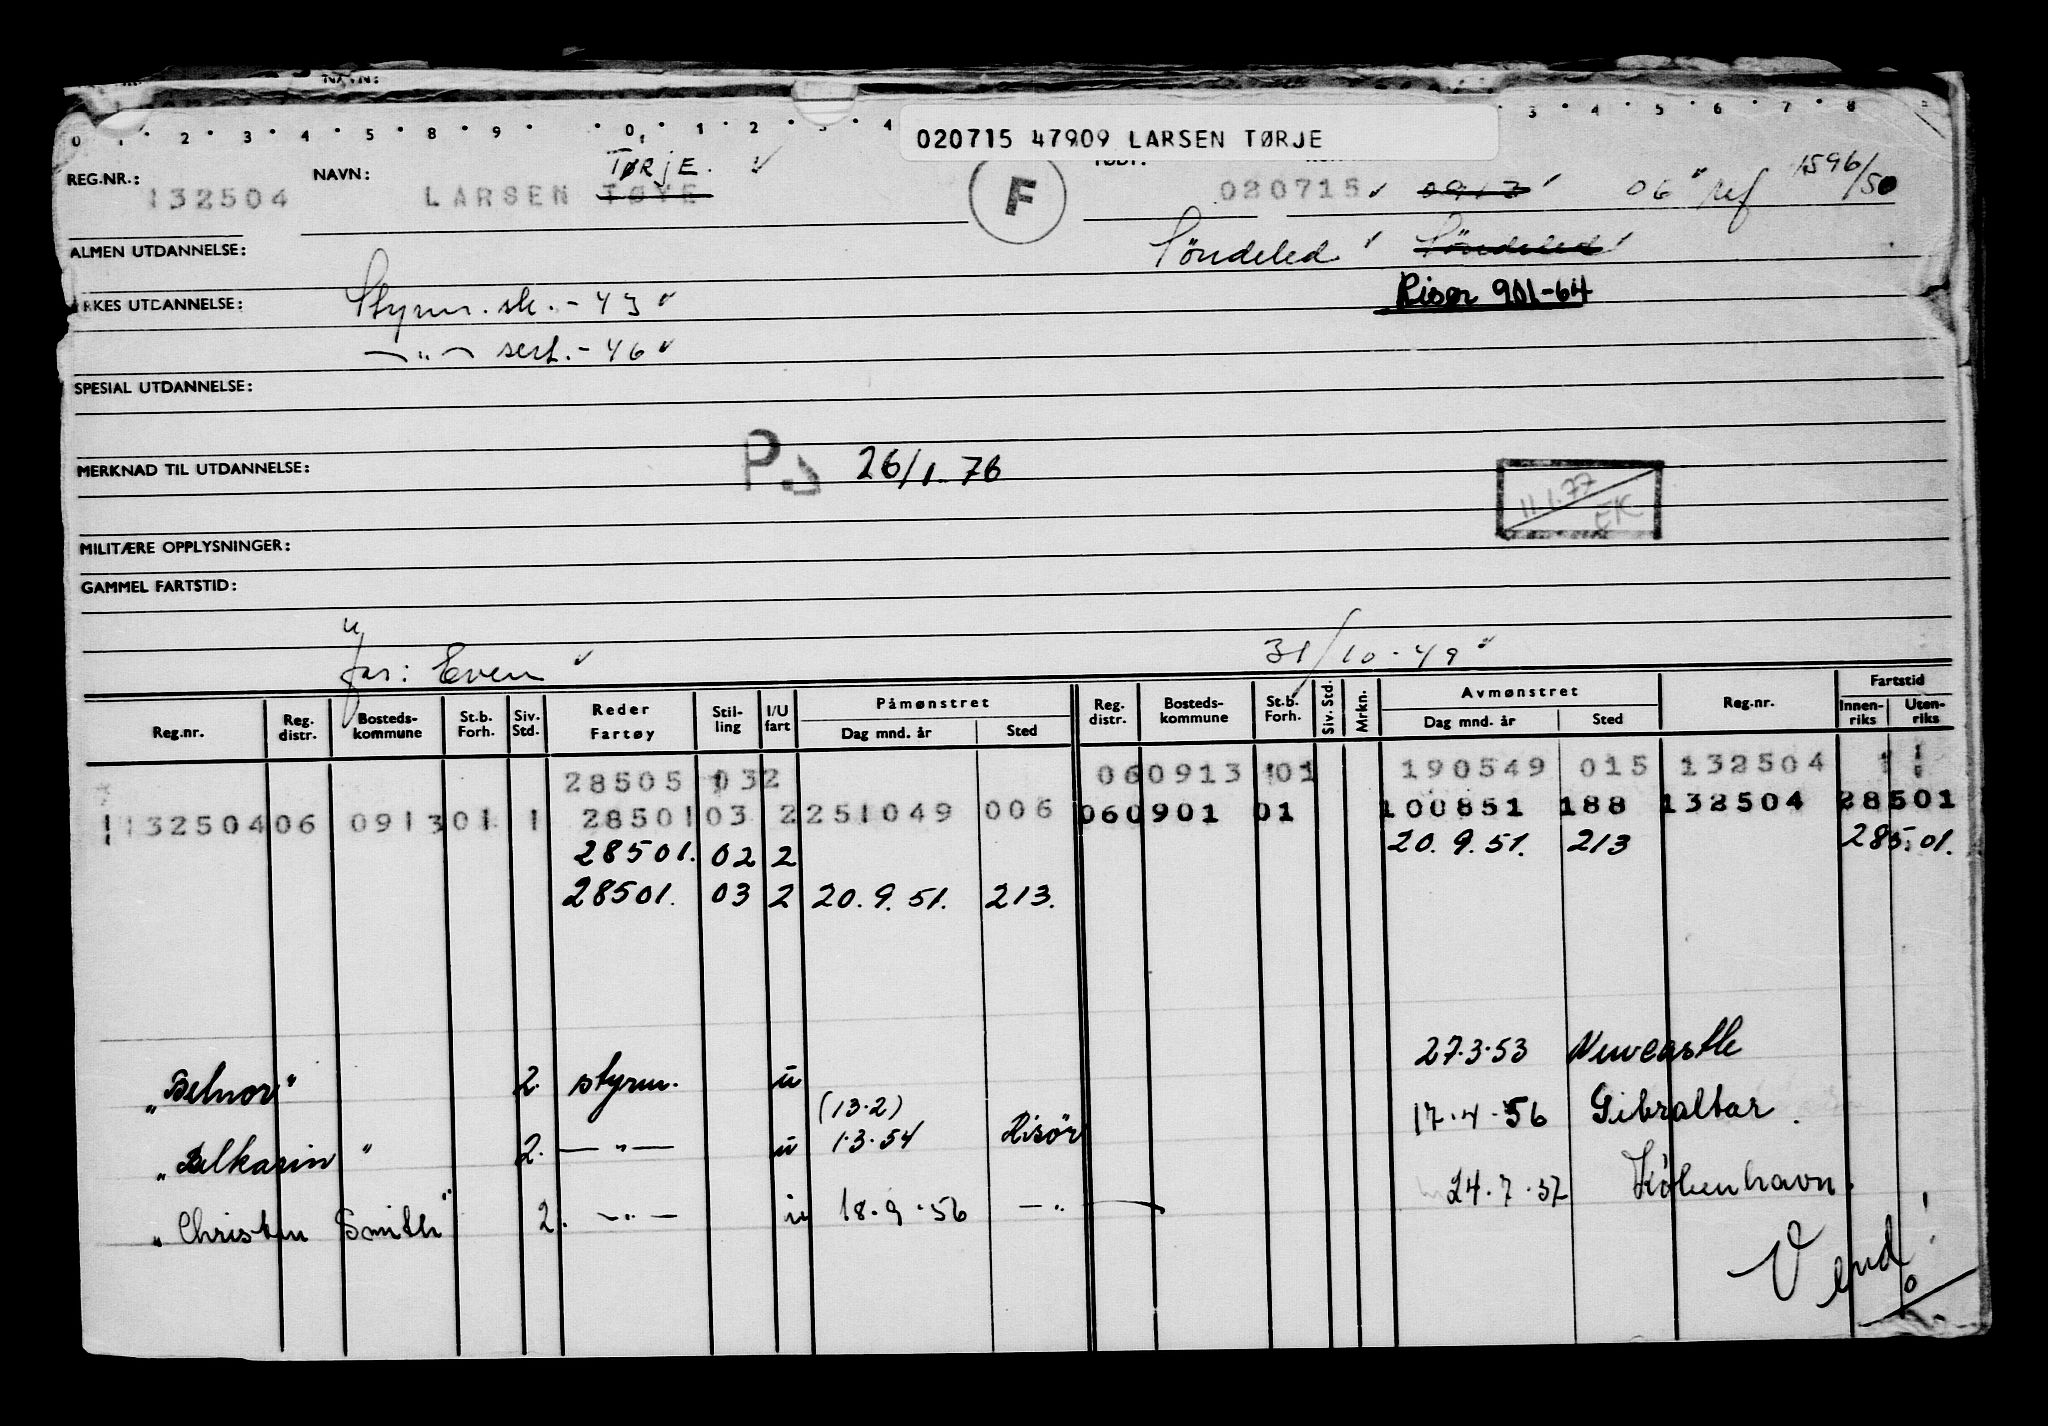 NAVN:
0 1 2 3 4 5 8 9 0 1 2 3 4 3 4 5 6 7 8
020715 47909 LARSEN TØRJE
REG.NR.: NAVN: TØRJE.
132504 LARSEN TØYE F 020715 0913 06 ref 1596/50
ALMEN UTDANNELSE: Söndeled Söndeled
YRKES UTDANNELSE: Styrm. sk. - 43 Risør 901-64
— " — sert. - 46
SPESIAL UTDANNELSE:
MERKNAD TIL UTDANNELSE: P. 26/1. 76
11.1.77 EK
MILITÆRE OPPLYSNINGER:
GAMMEL FARTSTID:
far: Even 31/10-49
Reg.nr. Reg. distr. Bosteds-kommune St.b. Forh. Siv. Std. Reder Fartøy Stil-ling I/U fart Påmønstret Dag mnd. år Sted Reg. distr. Bosteds-kommune St.b. Forh. Siv. Std. Mrkn. Avmønstret Dag mnd. år Sted Reg.nr. Fartstid Innen-riks Uten-riks
28505 032 060913 01 190549 015 132504
132504 06 0913 01 1 28501 03 2 251049 006 060901 01 100851 188 132504 28501
28501. 02 2 20. 9. 51. 213 285.01.
28501. 03 2 20. 9. 51. 213.
"Belnor" 2. styrm. u 27.3.53 Newcastle
(13.2)
"Belkarin" 2. — " — u 1.3.54 Risör 17.4.56 Gibraltar.
"Christen Smith" 2. — " — u 18.9.56 — " — 24.7.57 Köbenhavn.
Vend!